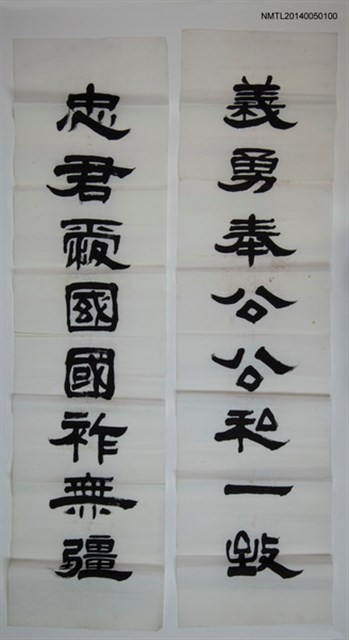 NMTL20140050100
義勇奉公公和一致
忠君愛國國祚無疆